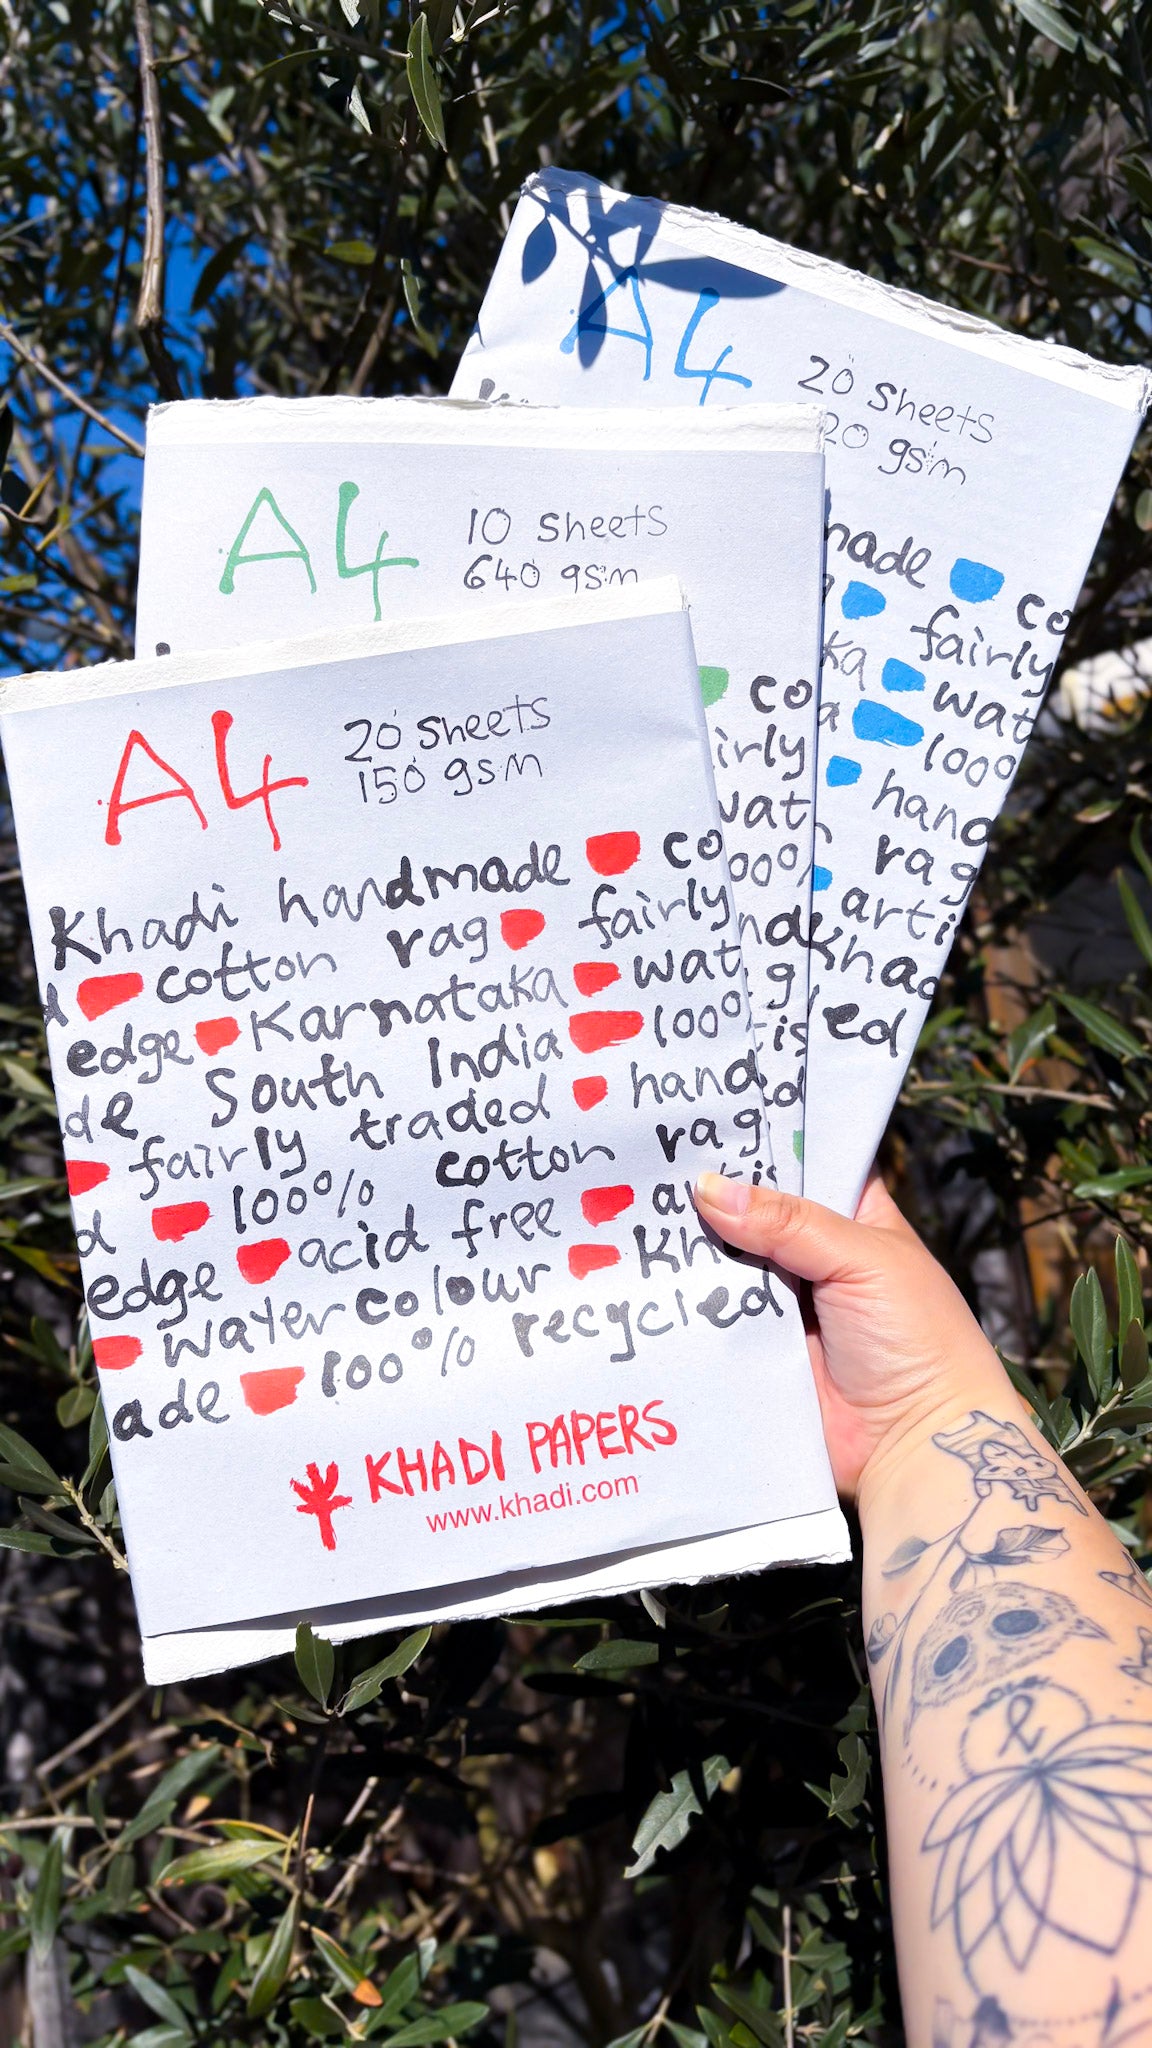 A4
20 sheets
20 gsm
made co
fairly
ka wat
a 100%
hand
rag
arti
Khad
ed
A4
10 sheets
640 gsm
co
irly
wat
00%
nd
g
tis
ed
A4
20 sheets
150 gsm
Khadi handmade co
d cotton rag fairly
edge Karnataka wat
de South India 100%
fairly traded hand
d 100% cotton rag
edge acid free artis
watercolour Kh
ade 100% recycled
KHADI PAPERS
www.khadi.com